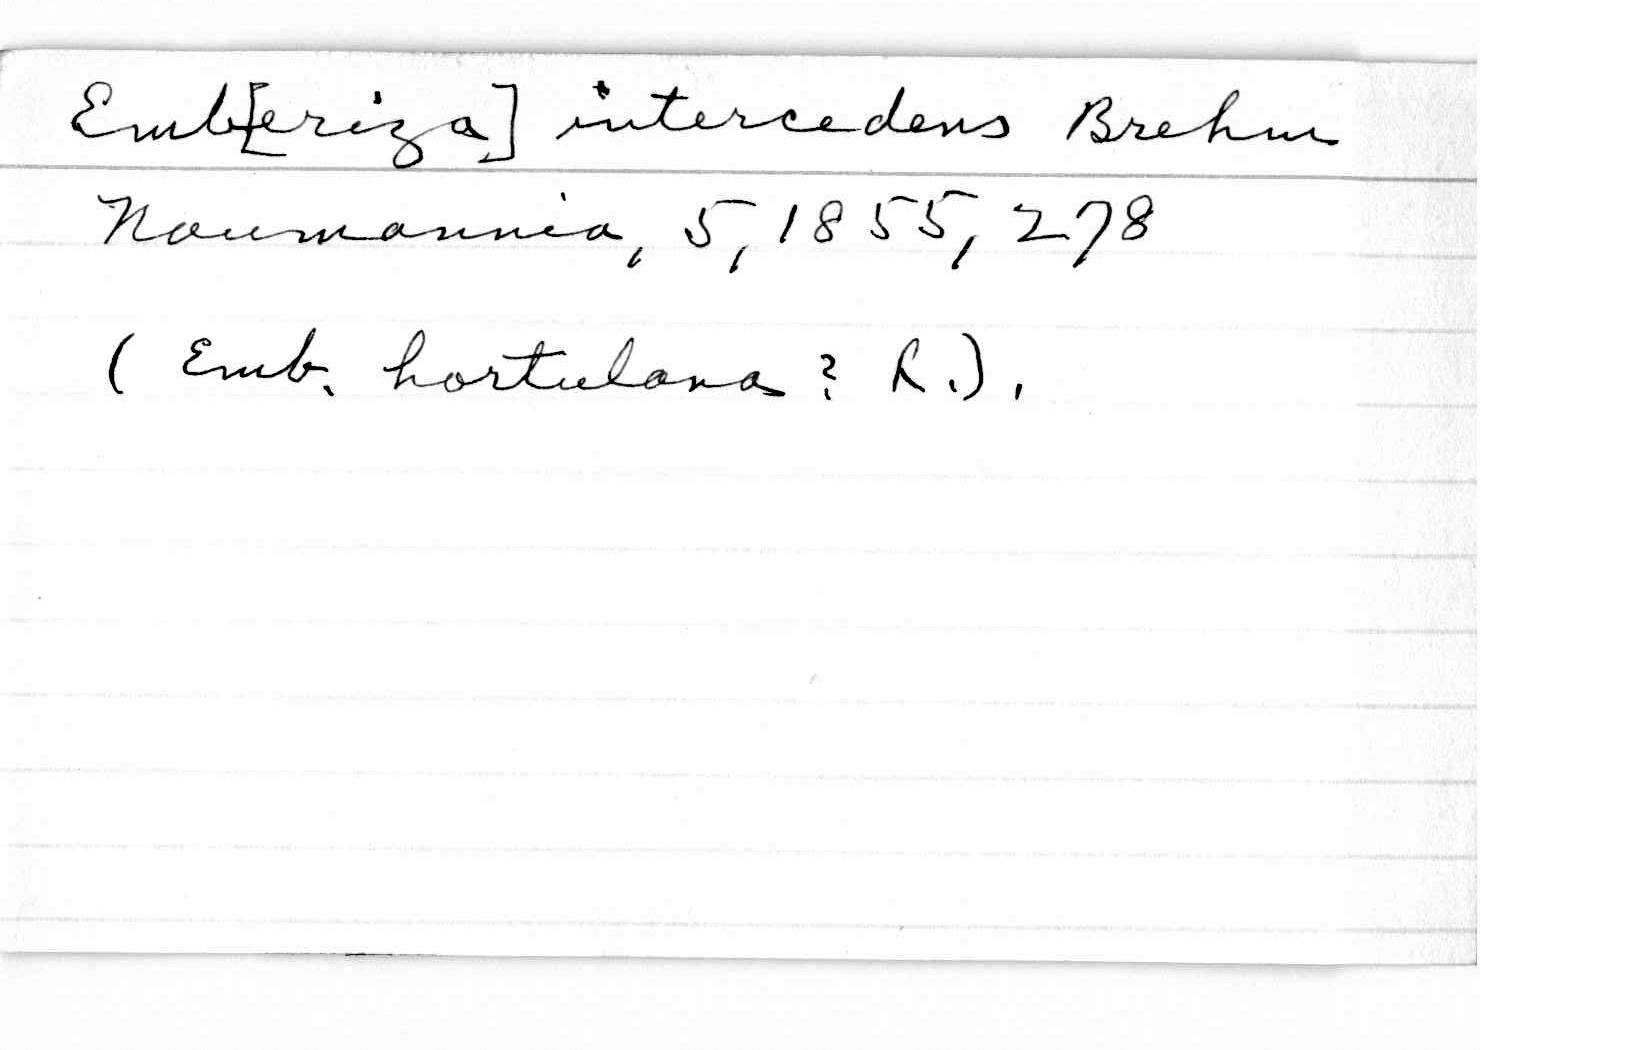 Emb[eriza] intercedens Brehm
Naumannia, 5, 1855, 278
( Emb. hortulana ? R.).